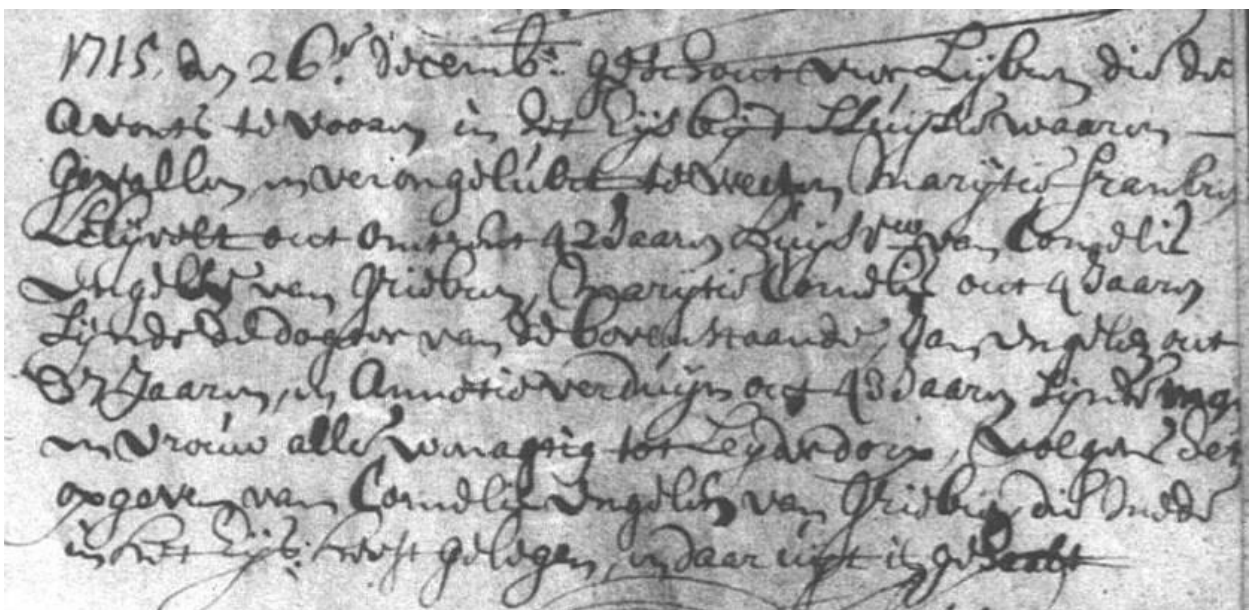 1715, den 26.e decemb.r geschout vier Lijken die des
avonts te vooren in het Eijs bij t Sluijsie waaren
gevallen, en verongelúkt te weeten Marijtie franken
Lelijvelt out omtrent 42 Jaaren Huijsvrw van Cornelis
Engelse van Grieken, Marijtie Cornelis out 4 Jaaren
Sijnde de dogter van de bovenstaande, Jan Engelse out
37 Jaaren, en Annetie verduijn out 43 Jaaren Sijnde man
en vrouw alle woonagtig tot Leijderdorp, volgens het
opgeven van Cornelis Engelse van Grieken, die meede
in het Eijs heeft gelegen, en daar uijt is geraakt